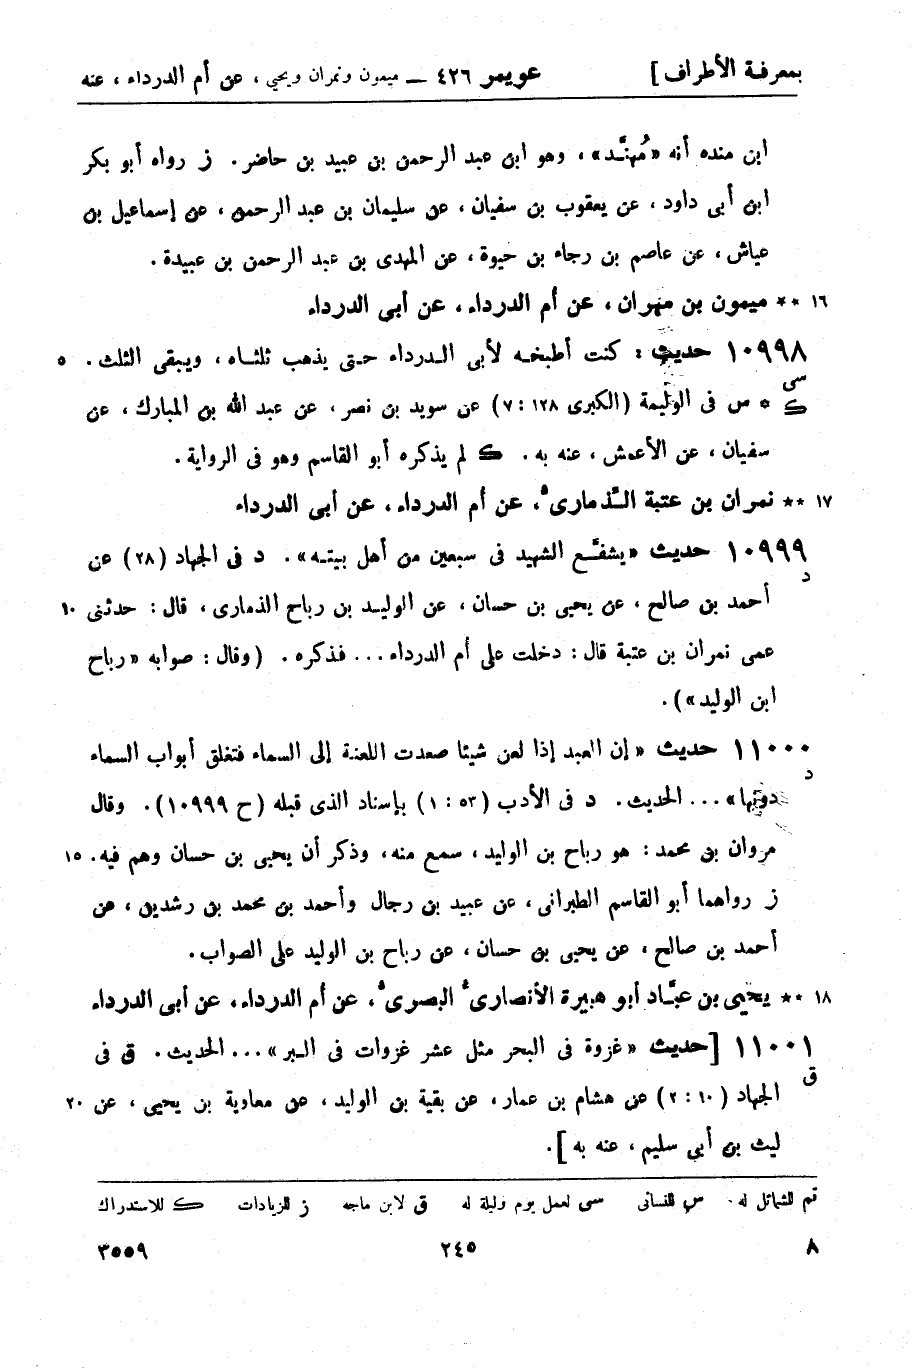 بمعرفة الأطراف] عويمر ٤٢٦ — ميمون ونمران ويحيى، عن أم الدرداء، عنه
ابن منده أنه «مُهنَّد»، وهو ابن عبد الرحمن بن عبيد بن حاضر. ز رواه أبو بكر
ابن أبى داود، عن يعقوب بن سفيان، عن سليمان بن عبد الرحمن، عن إسماعيل بن
عياش، عن عاصم بن رجاء بن حيوة، عن المهدى بن عبد الرحمن بن عبيدة.
١٦ ** ميمون بن مهران، عن أم الدرداء، عن أبى الدرداء
١٠٩٩٨ حديث: كنت أطبخه لأبى الدرداء حتى يذهب ثلثاه، ويبقى الثلث. ٥
سى
ك * س فى الوليمة (الكبرى ١٢٨: ٧) عن سويد بن نصر، عن عبد الله بن المبارك، عن
سفيان، عن الأعمش، عنه به. ك لم يذكره أبو القاسم وهو فى الرواية.
١٧ ** نمران بن عتبة الذمارى، عن أم الدرداء، عن أبى الدرداء
١٠٩٩٩ حديث «يشفَّع الشهيد فى سبعين من أهل بيته». د فى الجهاد (٢٨) عن
د
أحمد بن صالح، عن يحيى بن حسان، عن الوليد بن رباح الذمارى، قال: حدثنى ١٠
عمى نمران بن عتبة قال: دخلت على أم الدرداء... فذكره. (وقال: صوابه «رباح
ابن الوليد»).
١١٠٠٠ حديث «إن العبد إذا لعن شيئا صعدت اللعنة إلى السماء فتغلق أبواب السماء
د
دونها»... الحديث. د فى الأدب (٥٣: ١) بإسناد الذى قبله (ح ١٠٩٩٩). وقال
مروان بن محمد: هو رباح بن الوليد، سمع منه، وذكر أن يحيى بن حسان وهم فيه. ١٥
ز رواهما أبو القاسم الطبرانى، عن عبيد بن رجال وأحمد بن محمد بن رشدين، عن
أحمد بن صالح، عن يحيى بن حسان، عن رباح بن الوليد على الصواب.
١٨ ** يحيى بن عبَّاد أبو هبيرة الأنصارى البصرى، عن أم الدرداء، عن أبى الدرداء
١١٠٠١ [حديث «غزوة فى البحر مثل عشر غزوات فى البر»... الحديث. ق فى
ق
الجهاد (١٠: ٢) عن هشام بن عمار، عن بقية بن الوليد، عن معاوية بن يحيى، عن ٢٠
ليث بن أبى سليم، عنه به].
تم للشمائل له س للنسائى سى لعمل يوم وليلة له ق لابن ماجه ز للزيادات ك للاستدراك
٨ ٢٤٥ ٣٥٥٩